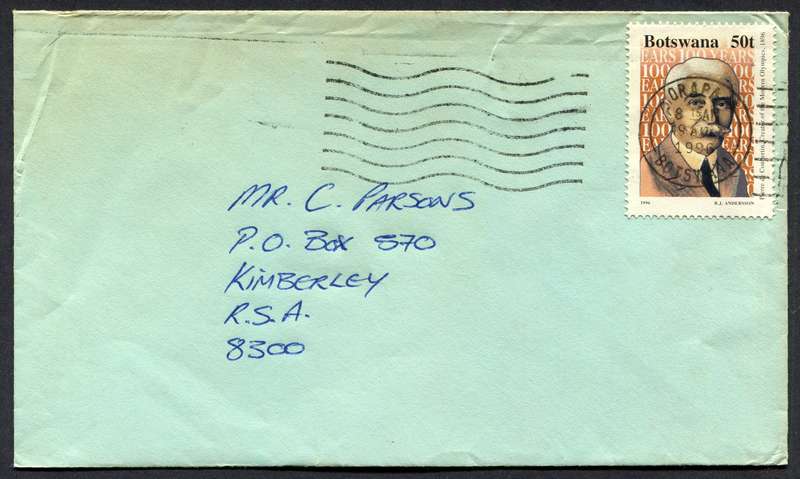 Botswana 50t
100 YEARS
ORAPA
1996
BOTSWANA
1996 R.J. ANDERSSON
Pierre de Coubertin, Creator of the Modern Olympics, 1896
MR. C. PARSONS
P.O. BOX 570
KIMBERLEY
R.S.A.
8300